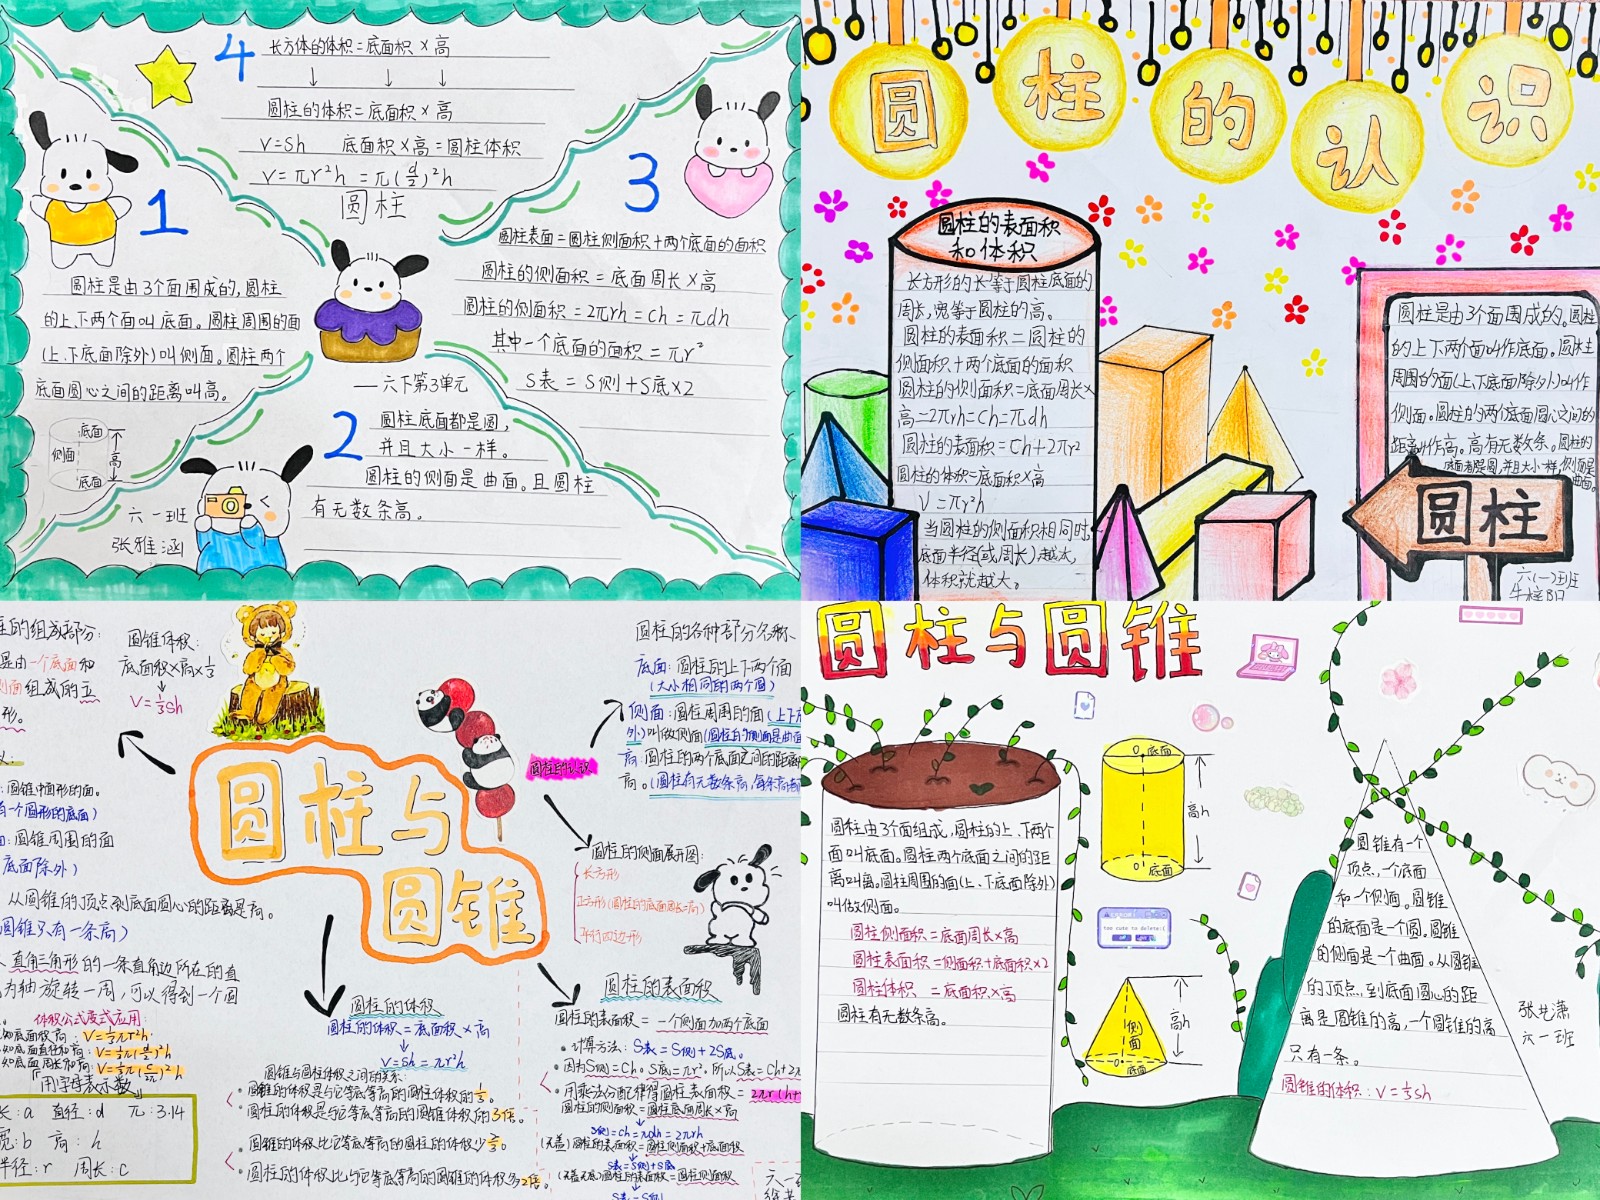 4
长方体的体积=底面积×高
↓ ↓ ↓
圆柱的体积=底面积×高
V=Sh 底面积×高=圆柱体积
V=πr²h =π(d/2)²h
圆柱
1
圆柱是由3个面围成的,圆柱
的上下两个面叫底面。圆柱周围的面
(上、下底面除外)叫侧面。圆柱两个
底面圆心之间的距离叫高。
底面
侧面
高
底面
六一班
张雅涵
3
圆柱表面=圆柱侧面积+两个底面的面积
圆柱的侧面积=底面周长×高
圆柱的侧面积=2πrh=Ch=πdh
其中一个底面的面积=πr²
S表=S侧+S底×2
——六下第3单元
2
圆柱底面都是圆,
并且大小一样。
圆柱的侧面是曲面。且圆柱
有无数条高。
圆柱的认识
圆柱的表面积
和体积
长方形的长等于圆柱底面的
周长,宽等于圆柱的高。
圆柱的表面积=圆柱的
侧面积+两个底面的面积
圆柱的侧面积=底面周长×
高=2πrh=Ch=πdh
圆柱的表面积=Ch+2πr²
圆柱的体积=底面积×高
V=πr²h
当圆柱的侧面积相同时,
底面半径(或周长)越大
体积就越大。
圆柱是由3个面围成的。圆柱
的上下两个面叫作底面。圆柱
周围的面(上、下底面除外)叫作
侧面。圆柱的两个底面圆心之间的
距离叫作高。高有无数条。圆柱的
底面都是圆,并且大小一样,侧面是
曲面。
圆柱
六(一)班
的组成部分:
是由一个底面和
侧面组成的立
形。
圆锥体积:
底面积×高×1/3
V=1/3Sh
:圆锥中圆形的面。
有一个圆形的底面)
:圆锥周围的面
底面除外)
从圆锥的顶点到底面圆心的距离是高。
圆锥只有一条高)
直角三角形的一条直角边所在的直
为轴旋转一周,可以得到一个圆
体积公式变式应用:
知底面积高: V=1/3πr²h
知底面直径和高: V=1/3π(d/2)²h
知底面周长和高: V=1/3π(C/2π)²h
用字母表示数
长:a 直径:d π:3.14
宽:b 高:h
半径:r 周长:C
圆柱与
圆锥
圆柱的认识
圆柱的各种部分名称
底面:圆柱的上下两个面
(大小相同的两个圆)
侧面:圆柱周围的面(上下
外)叫做侧面(圆柱的侧面是曲面
高:圆柱的两个底面之间的距离
高。(圆柱有无数条高,每条高
圆柱的侧面展开图:
长方形
正方形(圆柱的底面周长=高)
平行四边形
圆柱的体积
圆柱的体积=底面积×高
V=Sh=πr²h
圆锥与圆柱体积之间的关系:
圆锥的体积是与它等底等高的圆柱体积的1/3。
圆柱的体积是与它等底等高的圆锥体积的3倍。
圆锥的体积比它等底等高的圆柱的体积少2/3。
圆柱的体积比与它等底等高的圆锥的体积多2倍。
圆柱的表面积
圆柱的表面积=一个侧面加两个底面
计算方法:S表=S侧+2S底。
因为S侧=Ch。S底=πr²。所以S表=Ch+2π
用乘法分配律得圆柱表面积=2πr(h+
圆柱的侧面积=圆柱底面周长×高
S侧=Ch=πdh=2πrh
(无盖)圆柱的表面积=圆柱侧面积+底面积
S表=S侧+S底
(无盖无底)圆柱的表面积=圆柱侧面积
S表=S侧
圆柱与圆锥
圆柱由3个面组成,圆柱的上、下两个
面叫底面。圆柱两个底面之间的距
离叫高。圆柱周围的面(上、下底面除外)
叫做侧面。
圆柱侧面积=底面周长×高
圆柱表面积=侧面积+底面积×2
圆柱体积=底面积×高
圆柱有无数条高。
O 底面
高h
O 底面
too cute to delete:(
侧面
高h
底面
圆锥有一个
顶点,一个底面
和一个侧面。圆锥
的底面是一个圆。圆锥
的侧面是一个曲面。从圆锥
的顶点,到底面圆心的距
离是圆锥的高,一个圆锥的高
只有一条。
圆锥的体积:V=1/3Sh
张艺潇
六一班